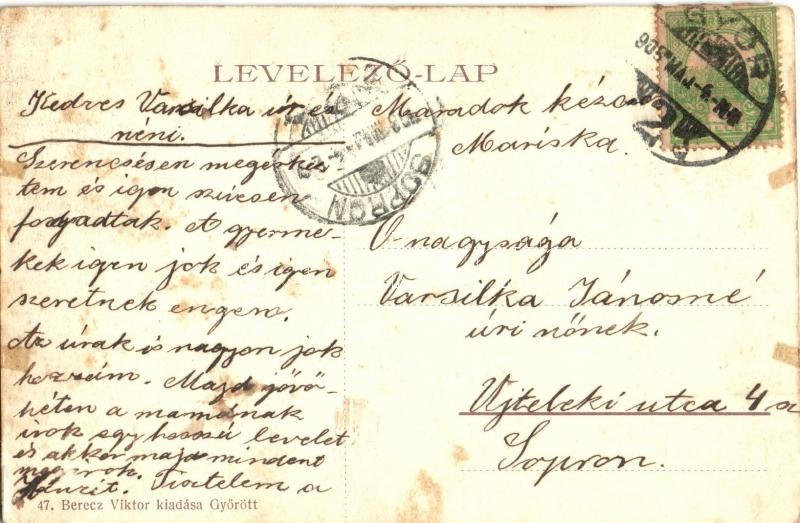 LEVELEZŐ-LAP
Kedves Varsilka úr és
néni.
Szerencsésen megérkez
tem és igen szivesen
fogadtak. A gyerme-
kek igen jok és igen
szeretnek engem.
Az úrak is nagyon jok
hozzám. Majd jövő-
héten a mamának
irok egy hosszú levelet
és akkor majd mindent
megirok.
Tisztelem a
Maradok kézc
Mariska.
SOPRON
GYŐR
Ő-nagysága
Varsilka Jánosné
úri nőnek.
Ujteleki utca 4 sz
Sopron.
47. Berecz Viktor kiadása Győrött